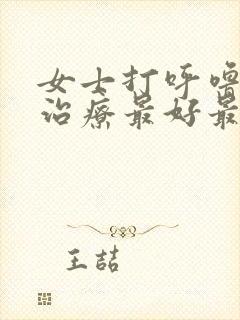 女士打呼噜
治疗最好最
王喆